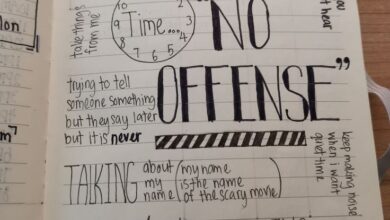 take things
from me
10
2
9
Time...
3
8
7
6
5
4
"NO
OFFENSE"
you
t hear
trying to tell
someone something
but they say later
but it is never
keep making noise
when i want
quiet time
TALKING
about
my
name
(my name
is the name
of the scary movie)